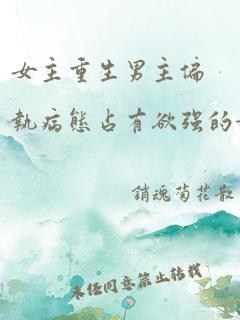 女主重生男主偏
执病態占有欲强的
銷魂菊花散
未经同意禁止转载